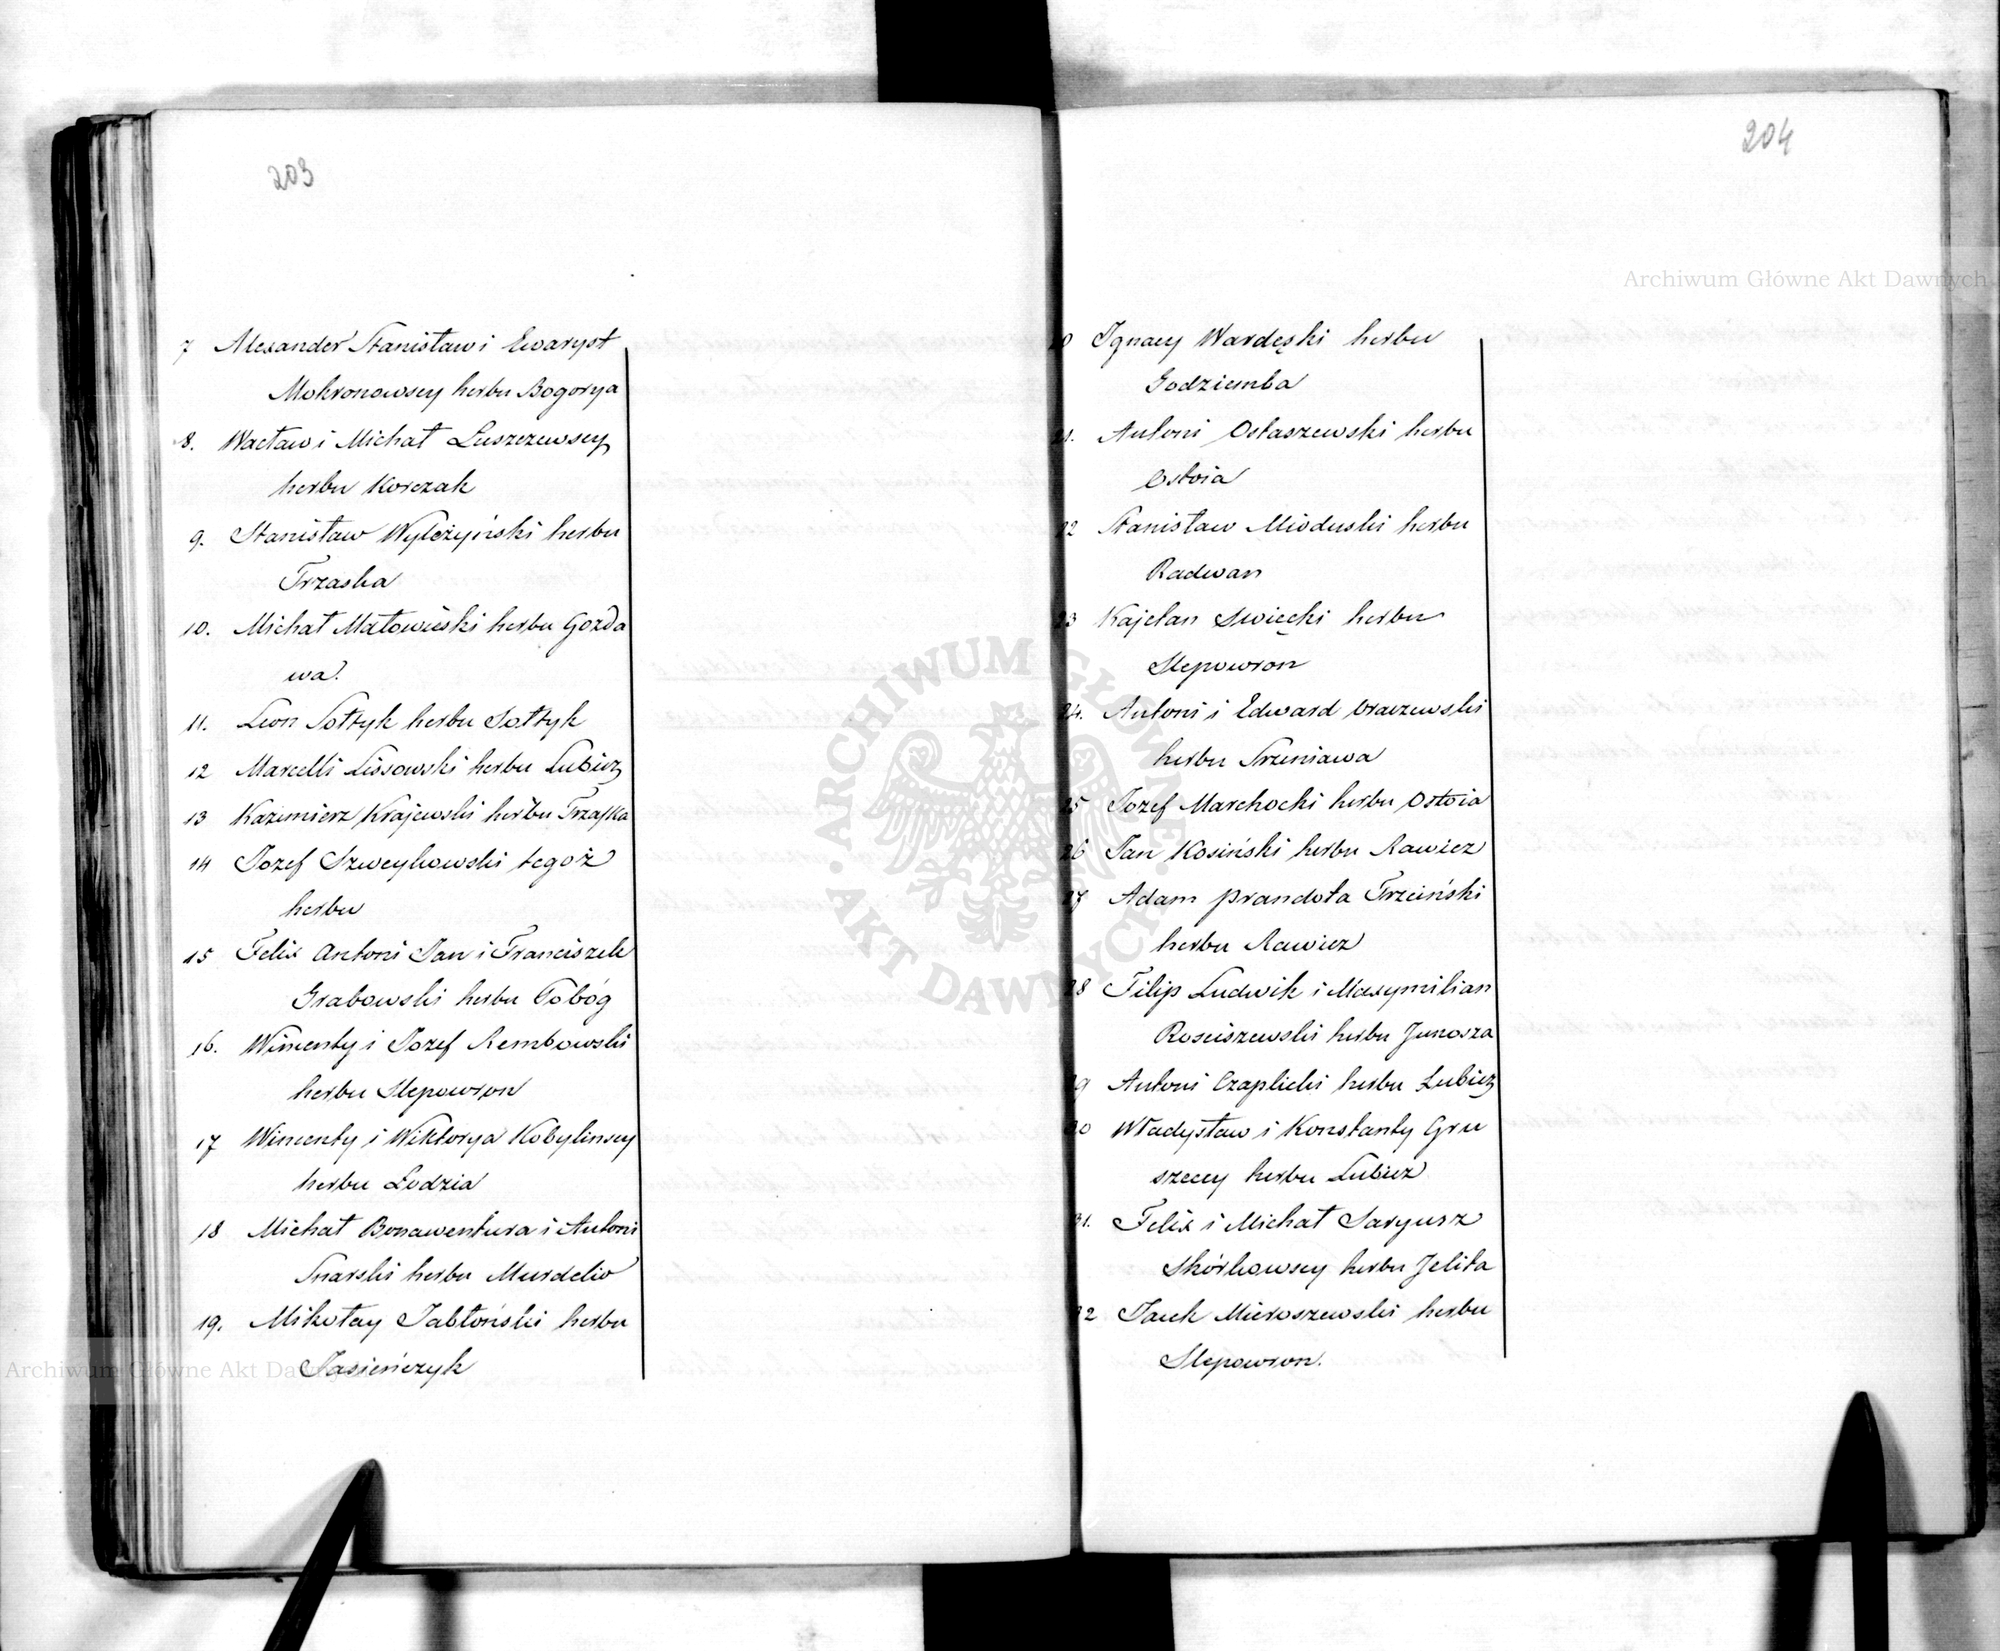 203
7 Alexander Stanisław i Ewaryst
Mokronowscy herbu Bogorya
8. Wacław i Michał Łuszczewscy
herbu Korczak
9. Stanisław Wylężyński herbu
Trzaska
10. Michał Małowieski herbu Gozda
wa.
11. Leon Sołtyk herbu Sołtyk
12 Marcelli Lissowski herbu Lubicz
13 Kazimierz Krajewski herbu Trzaska
14 Jozef Szweykowski tegoż
herbu
15 Felix Antoni Jan i Franciszek
Grabowski herbu Pobóg
16. Wincenty i Jozef Rembowski
herbu Slepowron
17 Wincenty i Wiktorya Kobylinscy
herbu Lodzia
18 Michał Bonawentura i Antoni
Snarski herbu Murdelio
19. Mikołay Jabłoński herbu
Jasieńczyk
204
20 Ignacy Wardęski herbu
Godziemba
21. Antoni Ostaszewski herbu
Ostoia
22 Stanisław Mioduski herbu
Radwan
23 Kajetan Swięcki herbu
Slepowron
24. Antoni i Edward Oraczewski
herbu Srzeniawa
25 Jozef Marchocki herbu Ostoia
26 Jan Kosiński herbu Rawicz
27 Adam Prandota Trzciński
herbu Rawicz
28 Filip Ludwik i Maxymilian
Rosciszewski herbu Junosza
29 Antoni Czaplicki herbu Lubicz
30 Władysław i Konstanty Gru
szeccy herbu Lubicz
31. Felix i Michał Saryusz
Skórkowscy herbu Jelita
32 Jacek Mieroszewski herbu
Slepowron.
Archiwum Główne Akt Dawnych
Archiwum Główne Akt Dawnych
ARCHIWUM GŁÓWNE AKT DAWNYCH